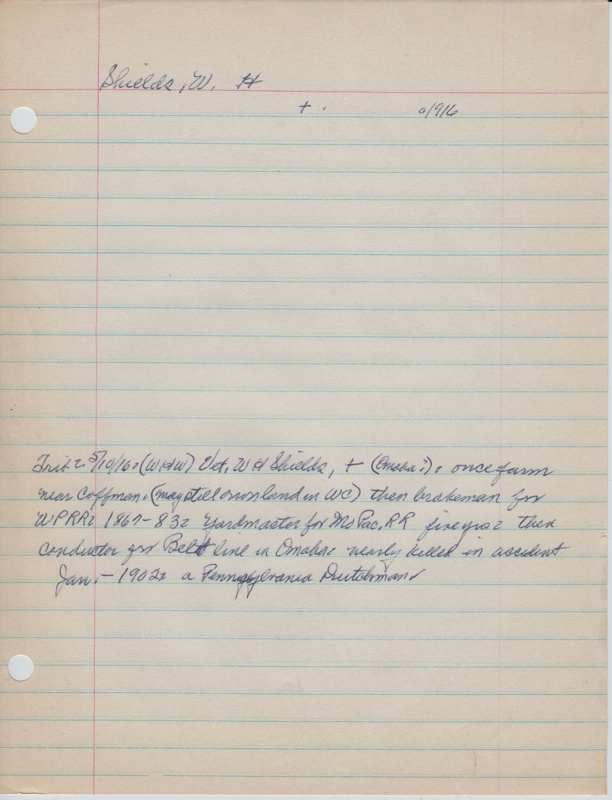 Shields, W. H
+ . 0/9/6
Trib: 5/10/16: (WHW) Vet, W H Shields, + (Omaha?): once farm
near Coffman. (may still own land in WC) then brakeman for
UPRR: 1867-83: Yardmaster for Mo Pac. RR five yrs: then
conductor for Belt line in Omaha: nearly killed in accident
Jan.- 1902: a Pennsylvania Dutchman